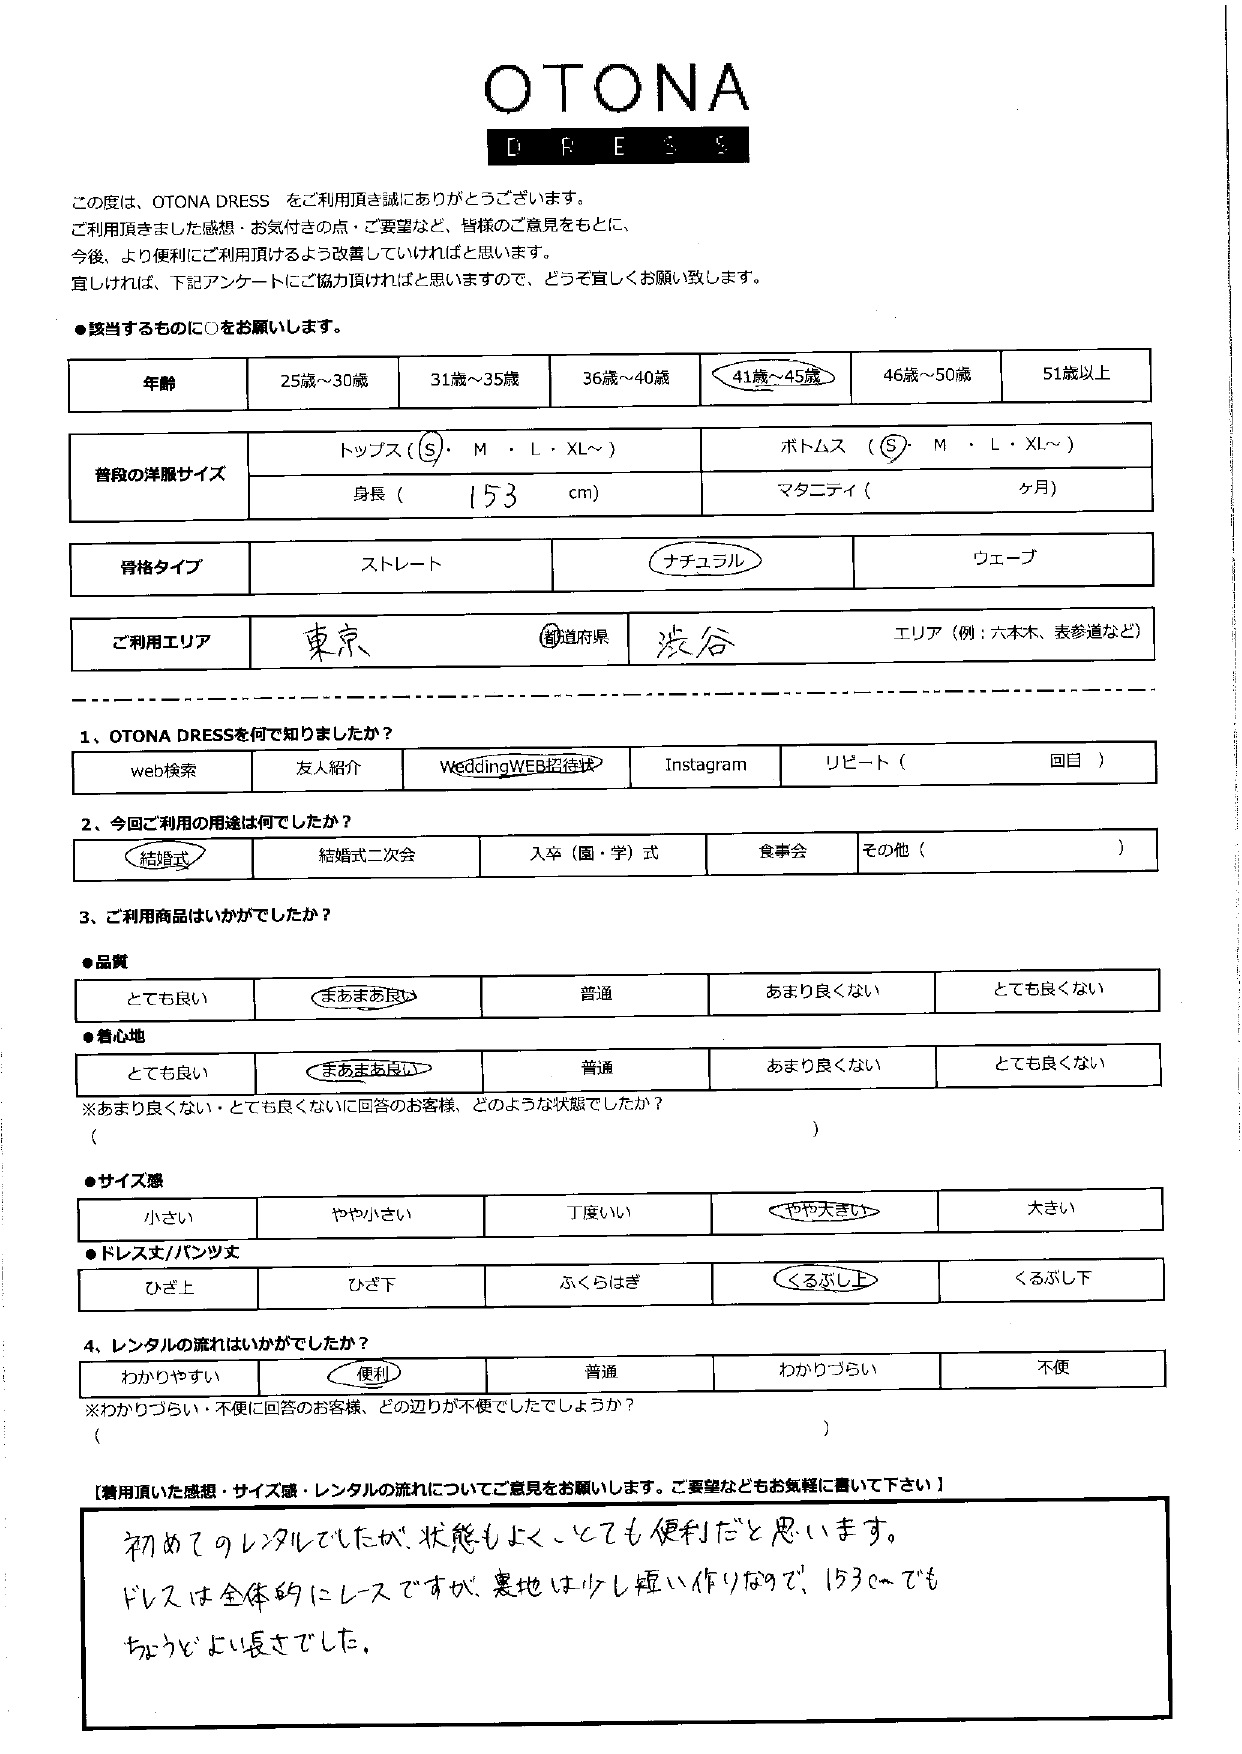 OTONA
DRESS
この度は、OTONA DRESS をご利用頂き誠にありがとうございます。
ご利用頂きました感想・お気付きの点・ご要望など、皆様のご意見をもとに、
今後、より便利にご利用頂けるよう改善していければと思います。
宜しければ、下記アンケートにご協力頂ければと思いますので、どうぞ宜しくお願い致します。
●該当するものに○をお願いします。
年齢 25歳～30歳 31歳～35歳 36歳～40歳 41歳～45歳 46歳～50歳 51歳以上
普段の洋服サイズ トップス(S・ M ・ L ・ XL～) ボトムス (S・ M ・ L ・ XL～)
身長 ( 153 cm) マタニティ ( ケ月)
骨格タイプ ストレート ナチュラル ウェーブ
ご利用エリア 東京 都道府県 渋谷 エリア（例：六本木、表参道など）
1、OTONA DRESSを何で知りましたか？
web検索 友人紹介 WeddingWEB招待状 Instagram リピート ( 回目 )
2、今回ご利用の用途は何でしたか？
結婚式 結婚式二次会 入卒（園・学）式 食事会 その他 ( )
3、ご利用商品はいかがでしたか？
●品質
とても良い まあまあ良い 普通 あまり良くない とても良くない
●着心地
とても良い まあまあ良い 普通 あまり良くない とても良くない
※あまり良くない・とても良くないに回答のお客様、どのような状態でしたか？
( )
●サイズ感
小さい やや小さい 丁度いい やや大きい 大きい
●ドレス丈/パンツ丈
ひざ上 ひざ下 ふくらはぎ くるぶし上 くるぶし下
4、レンタルの流れはいかがでしたか？
わかりやすい 便利 普通 わかりづらい 不便
※わかりづらい・不便に回答のお客様、どの辺りが不便でしたでしょうか？
( )
【着用頂いた感想・サイズ感・レンタルの流れについてご意見をお願いします。ご要望などもお気軽に書いて下さい】
初めてのレンタルでしたが、状態もよく、とても便利だと思います。
ドレスは全体的にレースですが、裏地は少し短い作りなので、153cmでも
ちょうどよい長さでした。